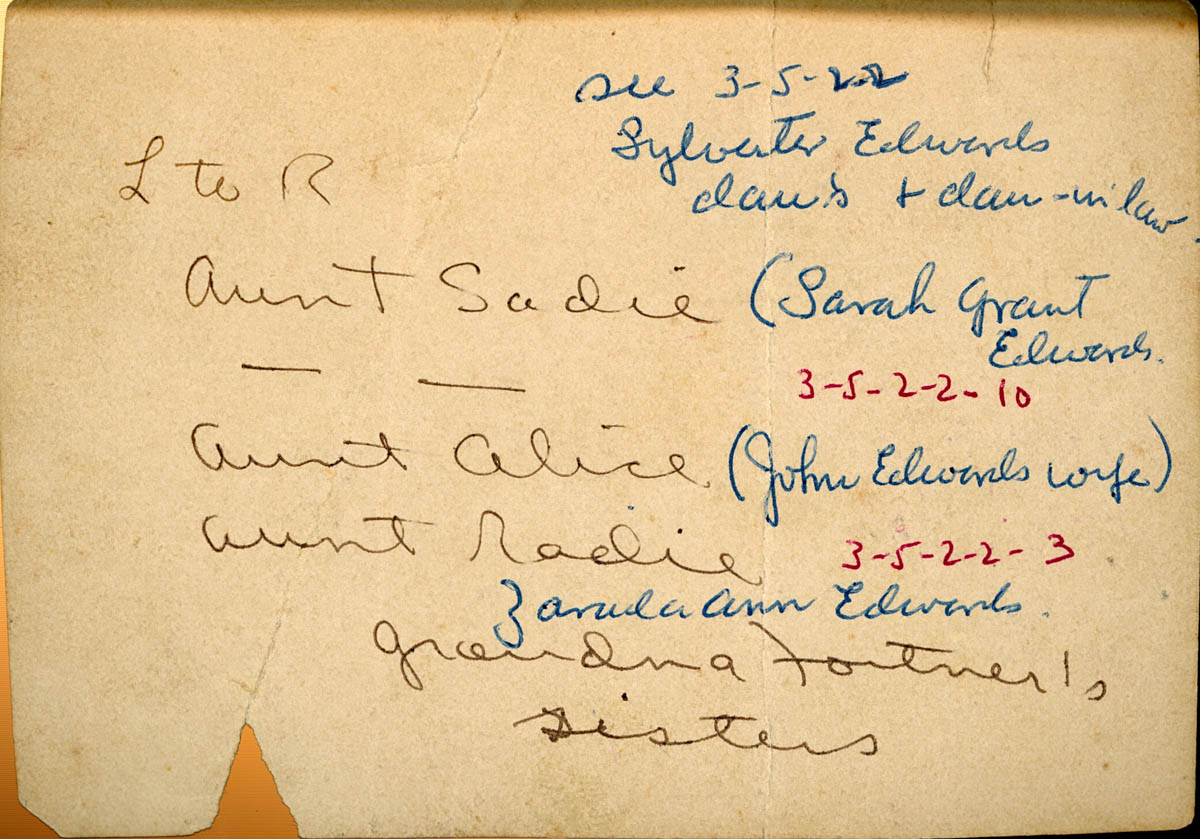 see 3-5-22
Sylvester Edwards
dau's + dau-in law.
L to R
Aunt Sadie (Sarah Grant
Edwards.
— —
3-5-2-2-10
Aunt Alice (John Edwards wife)
Aunt Radie
3-5-2-2-3
Zarada Ann Edwards.
Grandma Fortner's
sisters